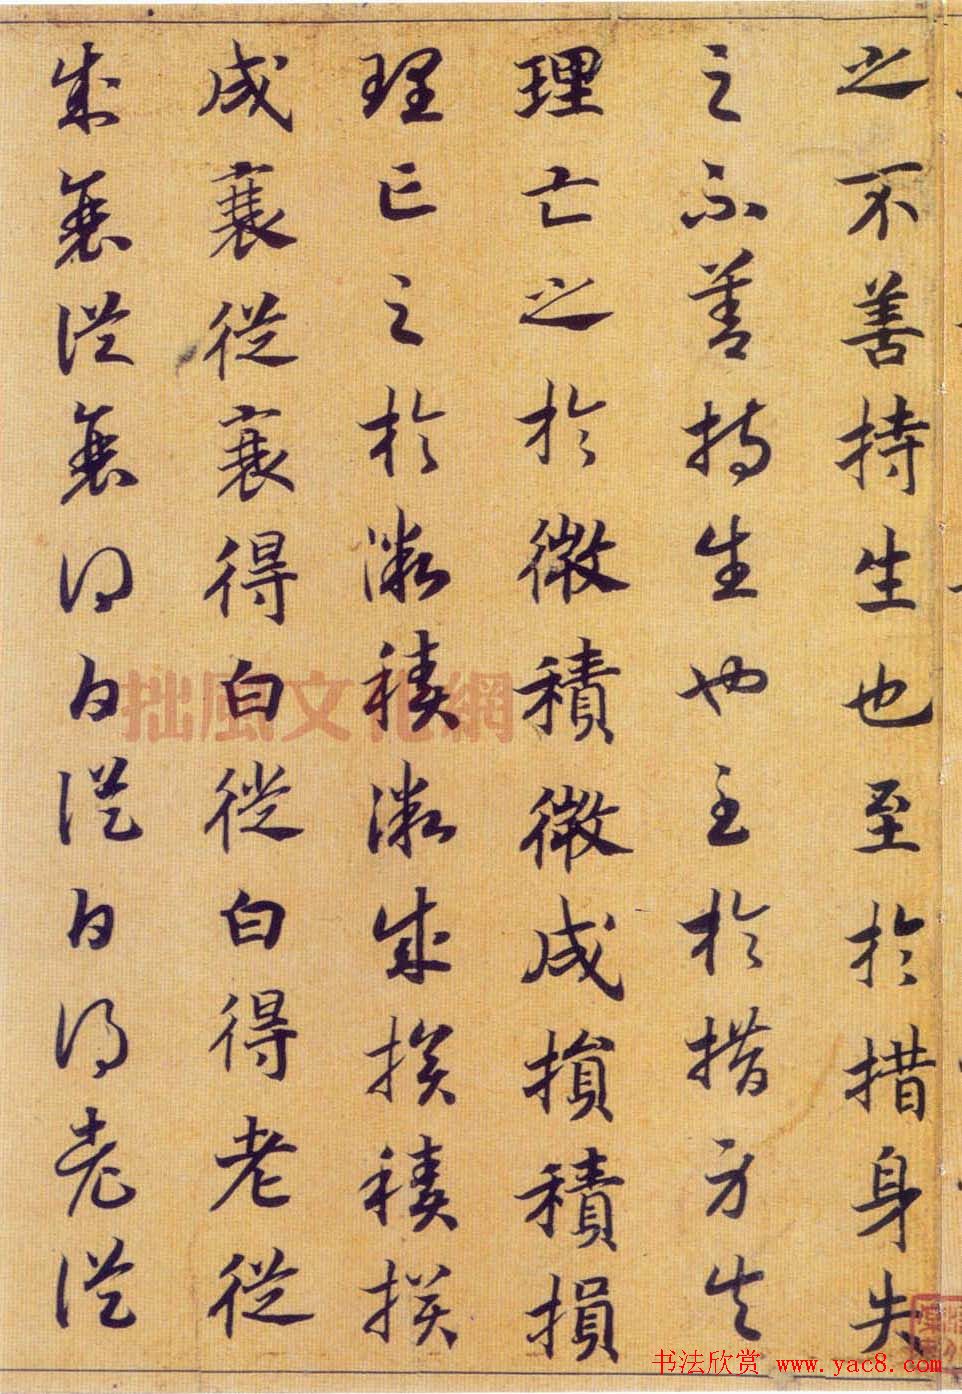 之不善持生也至於措身失
之不善持生也至於措身失
理亡之於微積微成損積損
理亡之於微積微成損積損
成衰從衰得白從白得老從
成衰從衰得白從白得老從
拙風文化網
书法欣赏 www.yac8.com